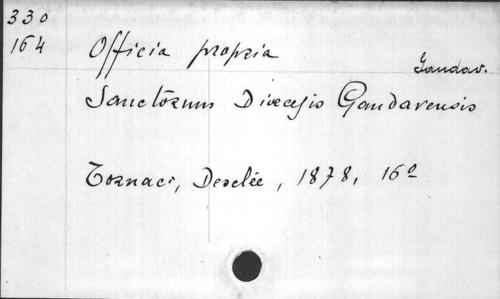 330
164
Officia propria
Gandav.
Sanctorum Diœcesis Gandavensis
Tornaci, Desclée, 1878, 16º